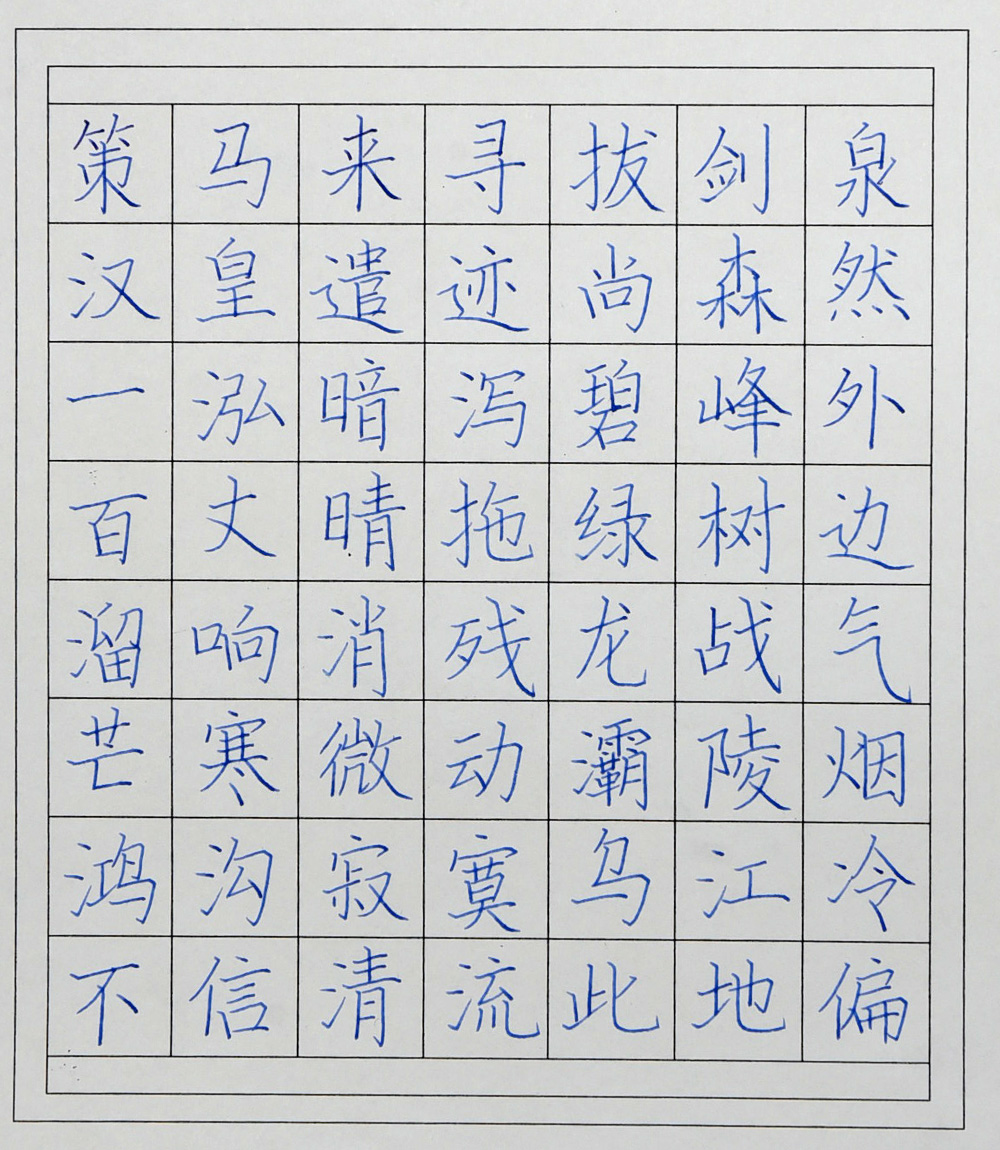 策马来寻拔剑泉
汉皇遣迹尚森然
一泓暗泻碧峰外
百丈晴拖绿树边
溜响消残龙战气
芒寒微动灞陵烟
鸿沟寂寞乌江冷
不信清流此地偏